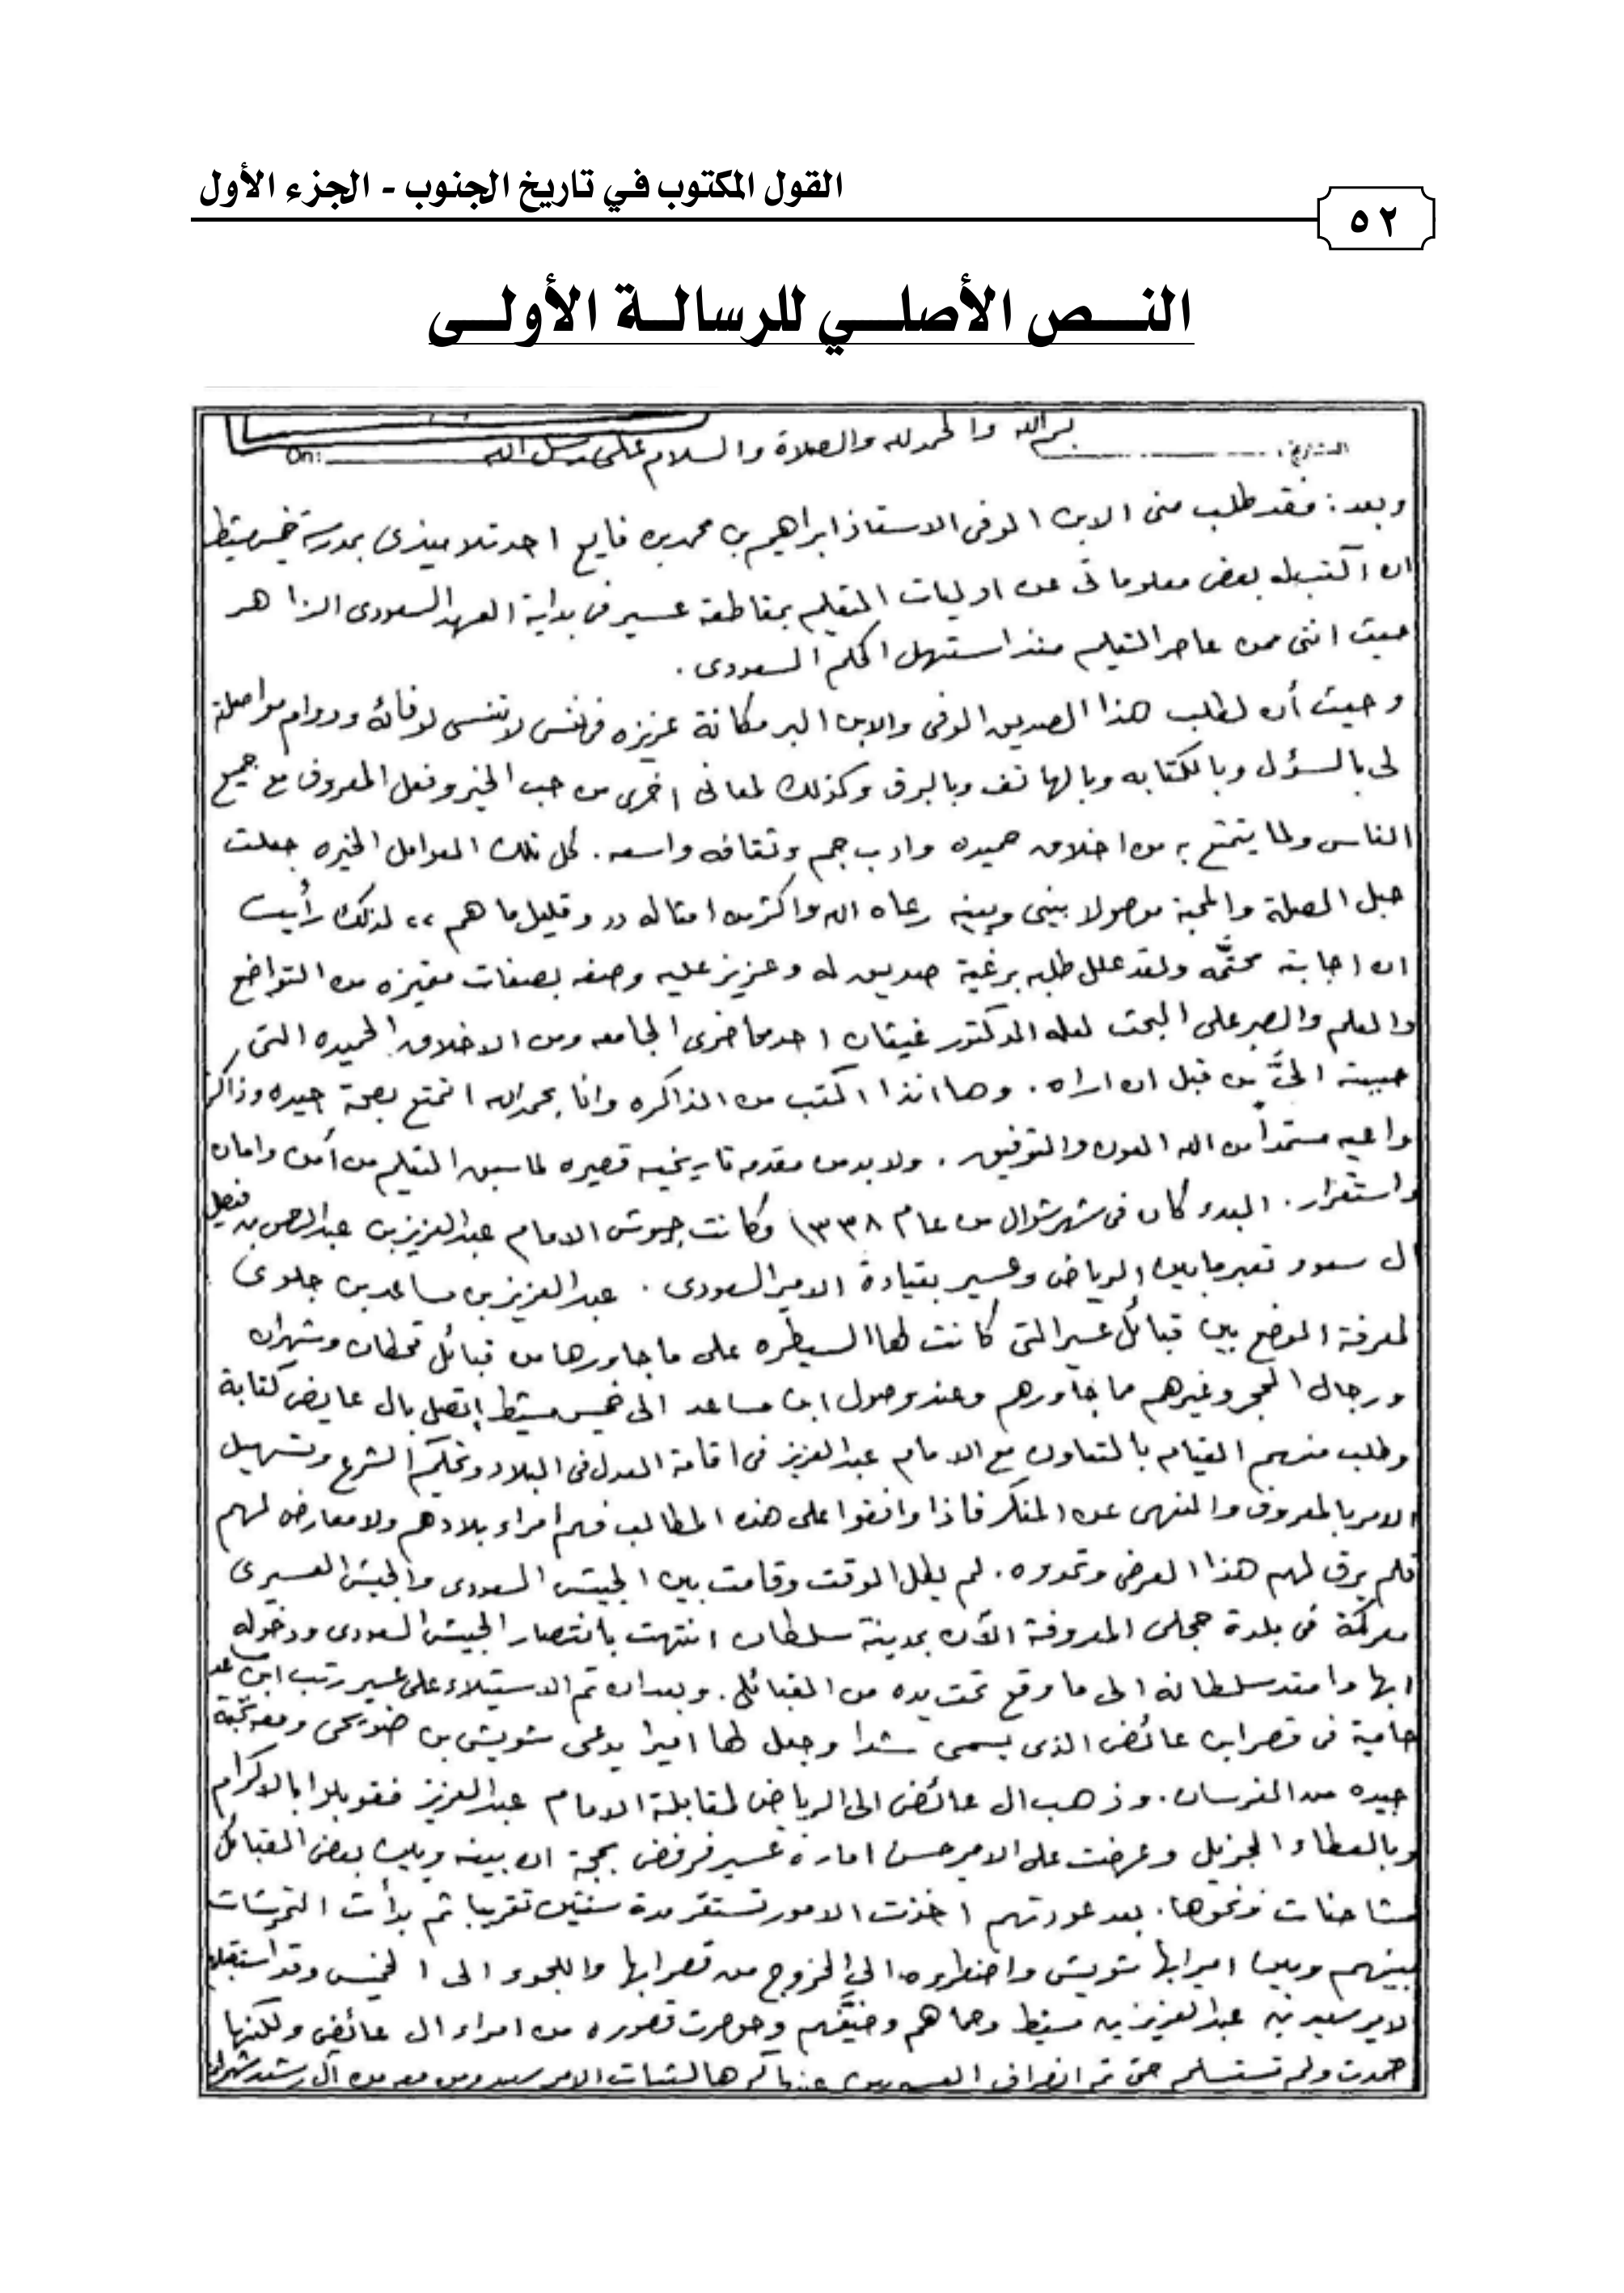 القول المكتوب في تاريخ الجنوب - الجزء الأول
٥٢
النـــص الأصلـــي للرسالـــة الأولـــى
بسم الله والحمد لله والصلاة والسلام على رسل الله
التاريخ: On:
وبعد: فقد طلب منى الابن الوفى الاستاذ ابراهيم بن محمد بن فايع احد تلاميذى بمدرسة خميس مشيط
ان اكتب له بعض معلوماتى عن اوليات التعليم بمقاطعة عسير فى بداية العهد السعودى الزاهر
حيث اننى ممن عاصر التعليم منذ استهل الحكم السعودى .
وحيث أن لطلب هذا الصديق الوفى والابن البر مكانة عزيزه فى نفسى لا تنسى لوفائه ودوام مواصلة
لى بالسؤل وبالكتابه وبالهاتف وبالبرق وكذلك لمعانى اخرى من حب الخير وفعل المعروف مع جميع
الناس ولما يتمتع به من اخلاق حميده وادب جم وثقافه واسعه . كل تلك العوامل الخيره جعلت
حبل الصلة والمحبة موصولا بينى وبينه رعاه الله واكثر من امثاله ,, وقليل ما هم ,, لذلك رأيت
ان اجابته محتمَّه ولقد علل طلبه برغبة صديق له وعزيز عليه وصفه بصفات متميزه من التواضع
والعلم والصبر على البحث لعله الدكتور غيثان احد محاضرى الجامعه ومن الاخلاق الحميده التى
حببته اليَّ من قبل ان اراه . وها انذا اكتب من الذاكره وانا بحمد الله اتمتع بصحة جيده وذاكرة
واعيه مستمداً من الله العون والتوفيق . ولا بد من مقدمه تاريخيه قصيره لما سبق التعليم من أمن وامان
واستقرار . البدء كان فى شهر شوال من عام ١٣٣٨ وكانت جيوش الامام عبدالعزيز بن عبدالرحمن بن فيصل
ال سعود تعبر مابين الرياض وعسير بقيادة الامير السعودى . عبدالعزيز بن مساعد بن جلوى
لمعرفة الوضع بين قبائل عسير التى كانت لها السيطره على ما جاورها من قبائل قحطان وشهران
ورجال الحجر وغيرهم مما جاورهم وعند وصول ابن مساعد الى خميس مشيط إتصل بال عايض كتابة
وطلب منهم القيام بالتعاون مع الامام عبدالعزيز فى اقامة العدل فى البلاد وتحكيم الشرع وتسهيل
الامر بالمعروف والنهى عن المنكر فاذا وافقوا على هذه المطالب فهم امراء بلادهم ولا معارض لهم
فلم يرق لهم هذا العرض وتمدوه . لم يطل الوقت وقامت بين الجيش السعودى والجيش العسيرى
معركة فى بلدة حجلى المعروفة الآن بمدينة سلطان انتهت بانتصار الجيش السعودى ودخوله
ابها وامتد سلطانه الى ما وقع تحت يده من القبائل . وبعد ان تم الاستيلاء على عسير رتب ابن مساعد
حامية فى قصر ابن عائض الذى يسمى شدا وجعل لها اميرا يدعى شويش بن ضويحى ومعه نخبة
جيده من الفرسان . وذهب ال عائض الى الرياض لمقابلة الامام عبدالعزيز فقوبلوا بالاكرام
وبالعطاء الجزيل وعرضت على الامير حسن امارة عسير فرفض بحجة ان بينه وبين بعض القبائل
مشاحنات ونحوها . بعد عودتهم اخذت الامور تستقر مدة سنتين تقريبا ثم بدأت التحرشات
بينهم وبين امير ابها شويش واضطروه الى الخروج من قصر ابها واللجوء الى الخميس وقد استقبله
الامير سعيد بن عبدالعزيز بن مشيط وحماهم وضيَّفهم وحوصرت قصوره من امراء ال عائض ولكنها
صمدت ولم تستسلم حتى تم انصراف العسيريون عنها كرها لثبات الامير سعيد ومن معه من آل رشيد شهران